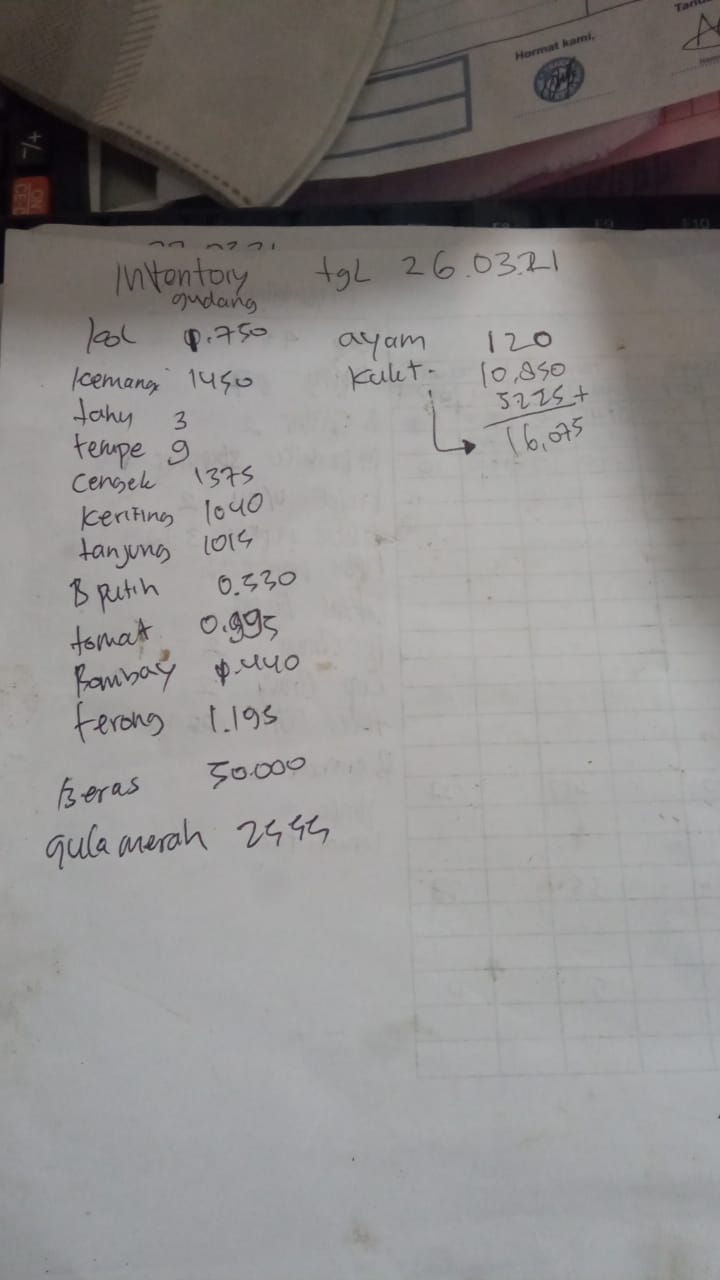 Hormat kami.
+/-
ON
F9
F10
Inventory tgl 26.03.21
gudang
kol 0.750
kemangi 1450
tahu 3
tempe 9
cengek 1375
keriting 1040
tanjung 1015
B putih 0.530
tomat 0.995
Bombay 0.440
terong 1.195
Beras 50.000
gula merah 2555
ayam 120
kulit. 10,850
5225 +
16,075